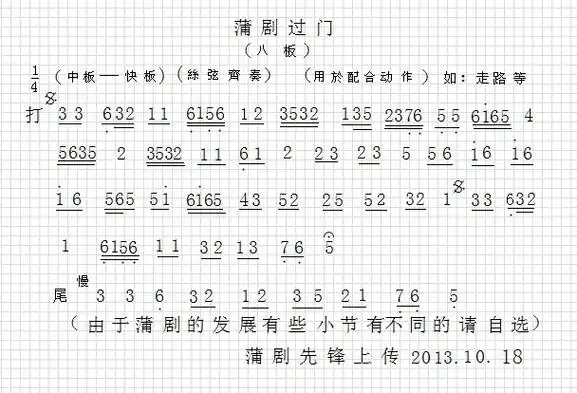 蒲剧过门
(八板)
1/4 (中板一快板) (絲弦齊奏) (用於配合动作) 如:走路等
打 𝄋 33 632 11 6156 12 3532 135 2376 55 6165 4
5635 2 3532 11 61 2 23 23 5 56 16 16
16 565 51 6165 43 52 25 52 32 1 𝄋 33 632
1 6156 11 32 13 76 5
尾 慢 3 3 6 32 12 35 21 76 5
(由于蒲剧的发展有些小节有不同的请自选)
蒲剧先锋上传 2013.10.18